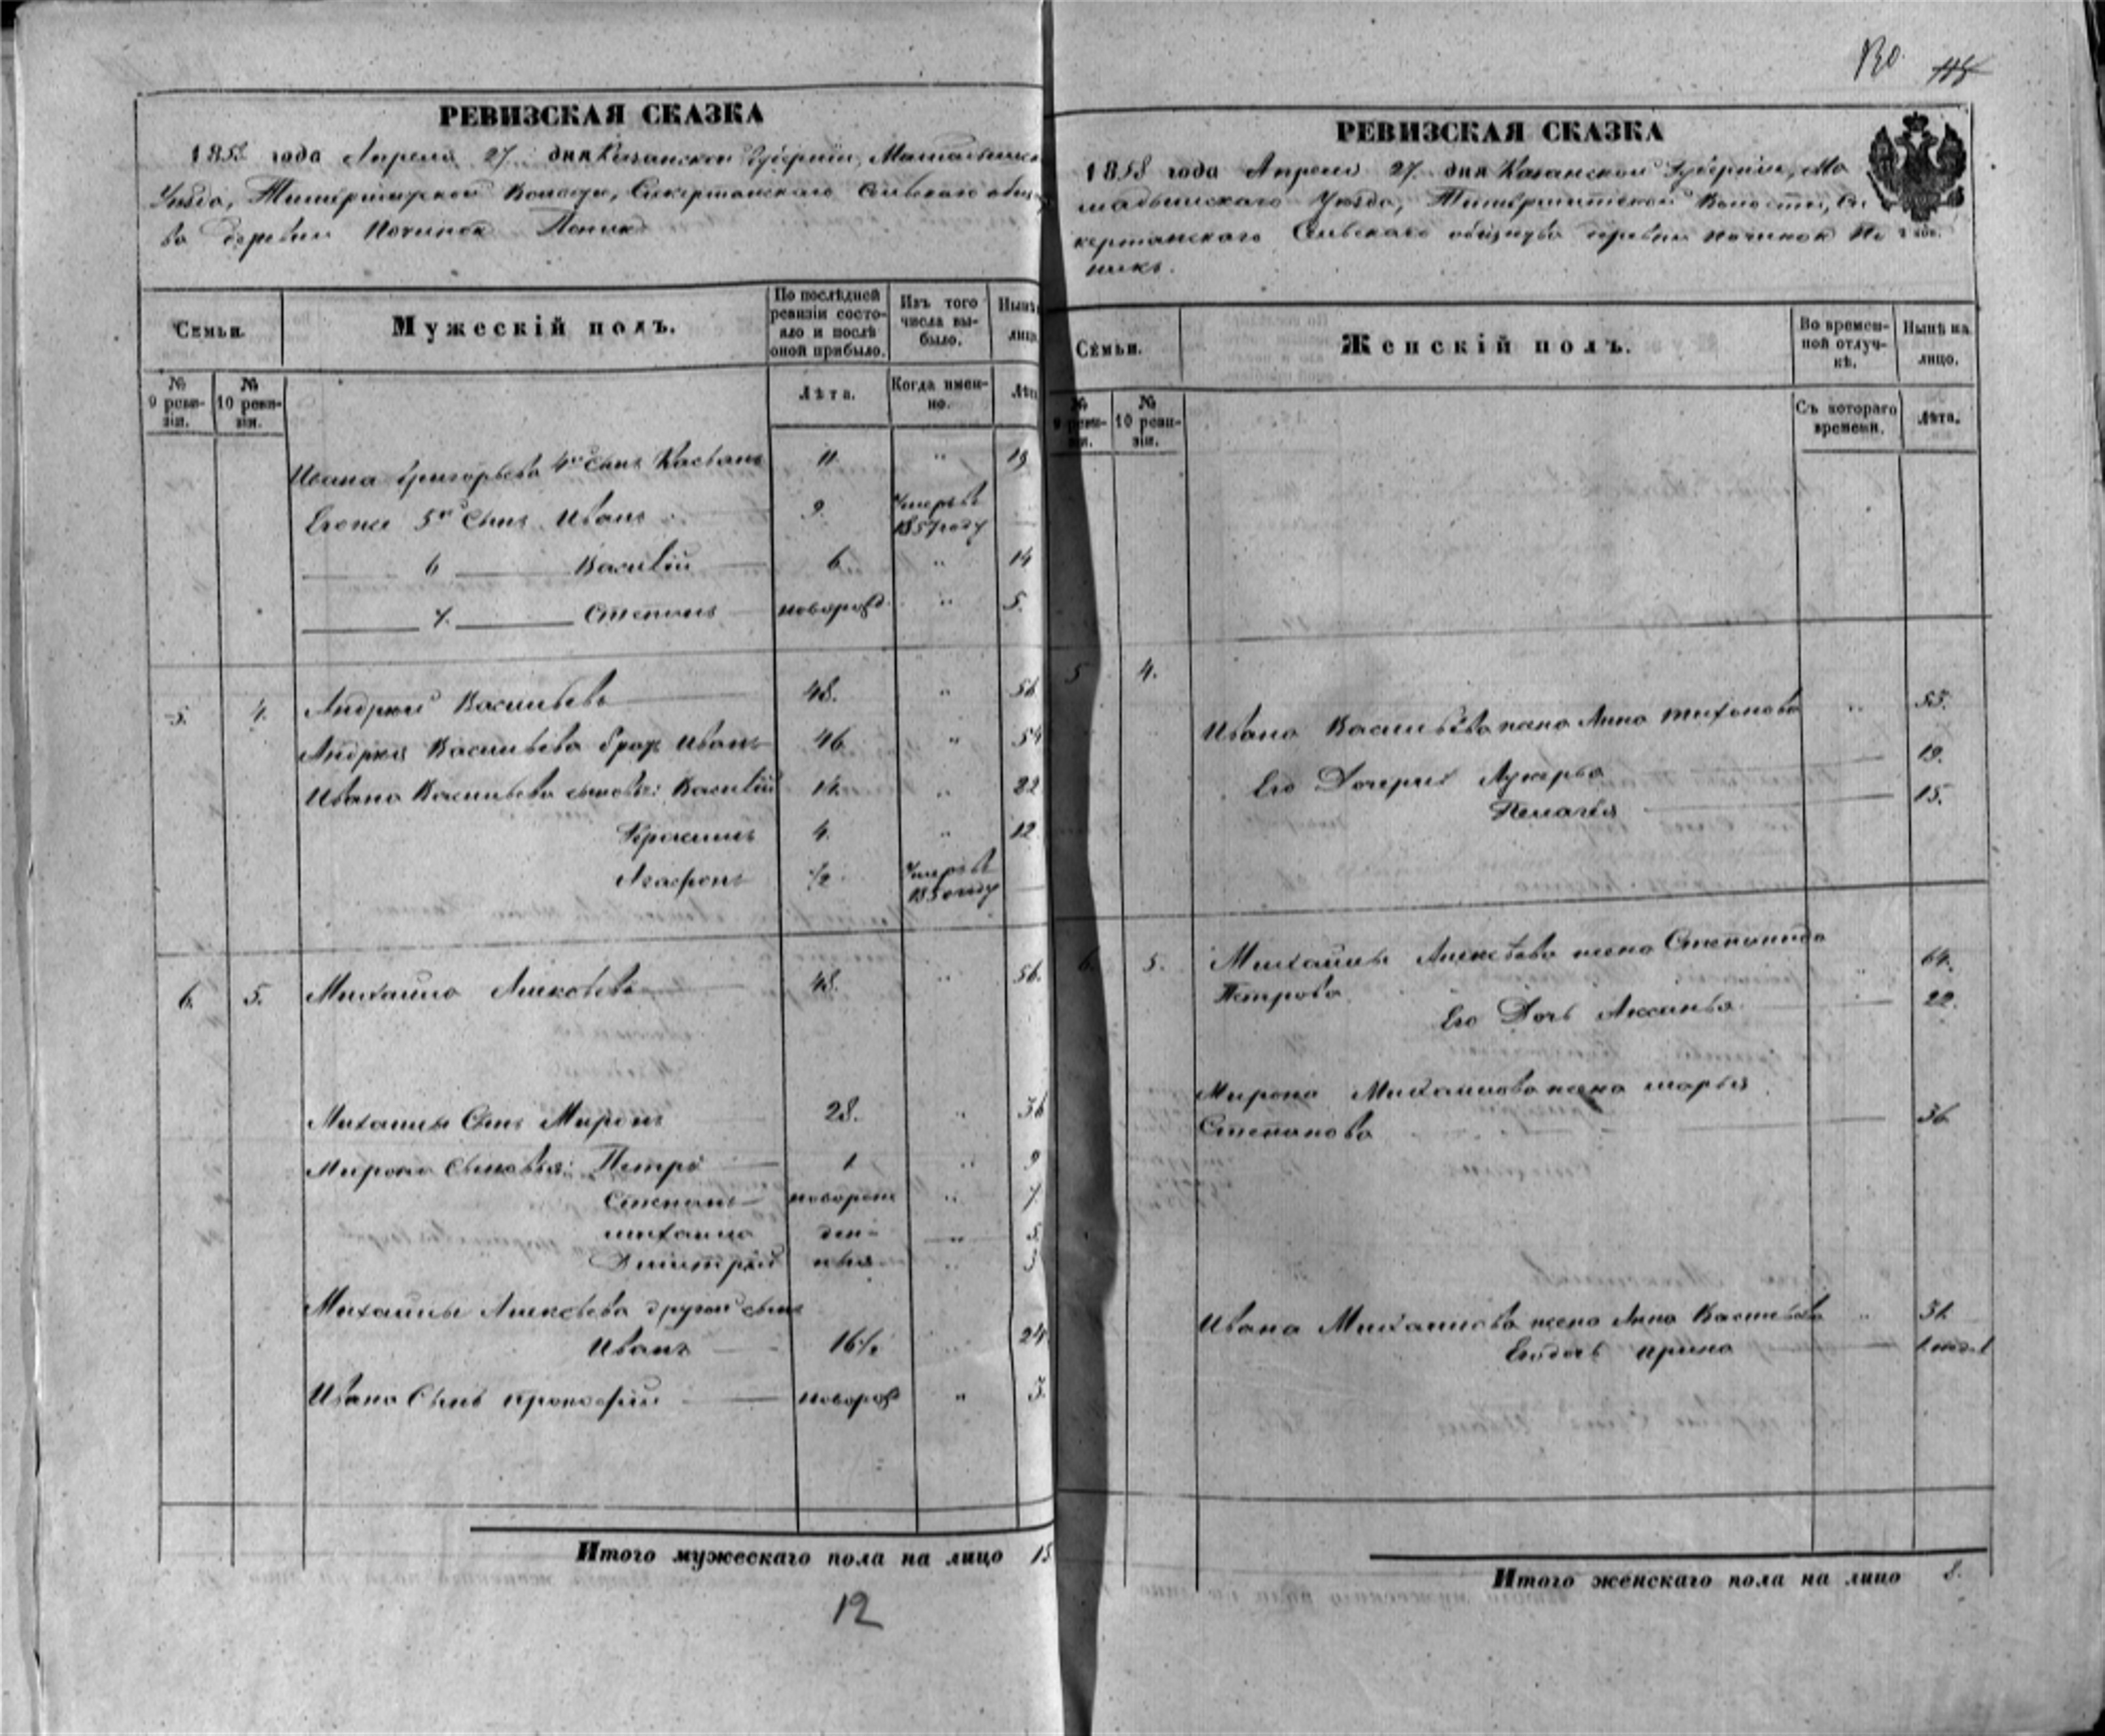 РЕВИЗСКАЯ СКАЗКА
1858 года Апреля 27 дня Казанской Губернии,
Уезда, Волости, Сельского
ва деревни Починок
Семьи.
Мужескій полъ.
По послѣдней ревизіи состояло и послѣ оной прибыло.
Изъ того числа выбыло.
Нынѣ
лицо
№ 9 ревизіи.
№ 10 ревизіи.
Лѣта.
Когда именно.
Лѣта
Ивана Григорьева 4й сынъ 11. " 19
Егоже 5й сынъ Иванъ 9. умеръ въ 1857 году
6 Василій 6. " 14
7. Степанъ новорожд. " 5.
5. 4. Андрей Васильевъ 48. " 56
Андрея Васильева братъ Иванъ 46 " 54
Ивана Васильева сыновья: Василій 14. " 22
Герасимъ 4. " 12
Агафонъ ½ умеръ въ 1850 году
6. 5. Михайло Алексѣевъ 48. " 56.
Михайлы Сынъ Миронъ 28. " 36
Мирона Сыновья: Петръ 1 " 9
Степанъ новорож " 7.
Михайло ден- " 5.
Дмитрій ные " 3
Михайлы Алексѣева другой сынъ
Иванъ 16½ " 24
Ивана Сынъ Прокофій новорож " 3.
Итого мужескаго пола на лицо 15
12
130.
РЕВИЗСКАЯ СКАЗКА
1858 года Апреля 27 дня Казанской Губерніи, Ма
мадышскаго Уезда, Волости,
Сельскаго общества деревни Починок
Семьи.
Женскій полъ.
Во временной отлучкѣ.
Нынѣ на лицо.
№ 9 ревизіи.
№ 10 ревизіи.
Съ котораго времени.
Лѣта.
5 4.
Ивана Васильева жена Анна Тихонова " 55.
Его Дочери Лукерья 19.
Пелагея 15.
6. 5. Михайлы Алексѣева жена Степанида
Петрова " 64.
Его Дочь Аксинья 22.
Мирона Михайлова жена Марья
Степанова 36
Ивана Михайлова жена Анна Васильева " 31.
Его дочь Ирина
Итого женскаго пола на лицо 8.